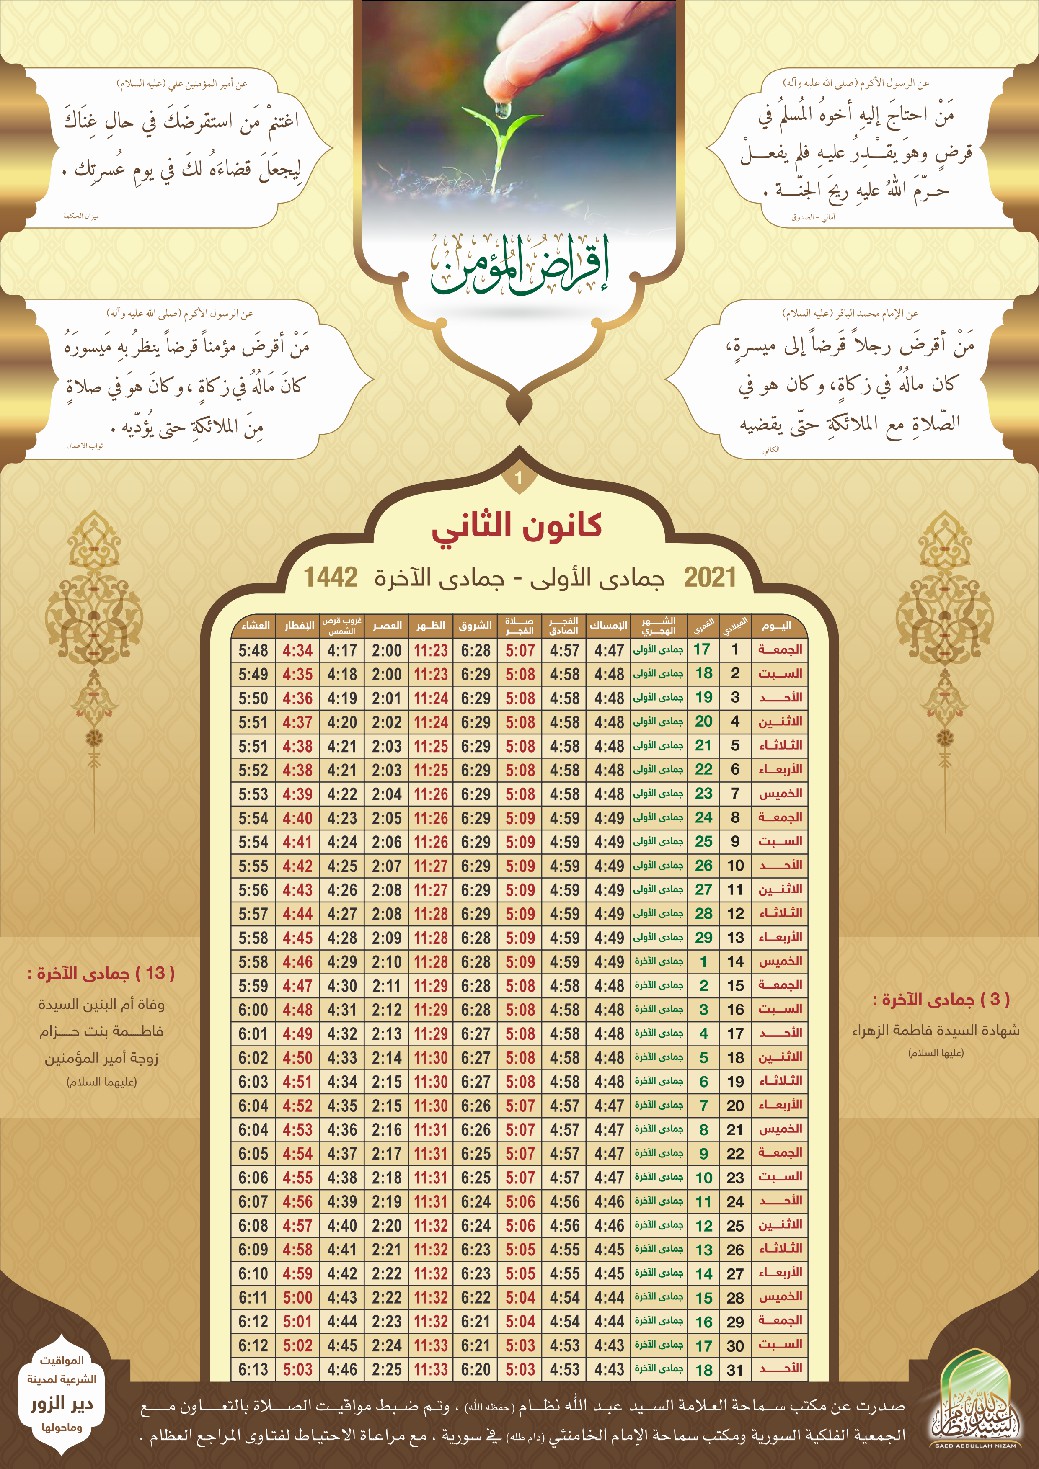 عن الرسول الأكرم (صلى الله عليه وآله)
مَنْ احتاجَ إليهِ أخوهُ المُسلمُ في
قرضٍ وهوَ يقْـدِرُ عليـهِ فلم يفعــلْ
حـرّمَ اللهُ عليهِ ريحَ الجنّــة .
أمالي - الصدوق
عن أمير المؤمنين علي (عليه السلام)
اغتنمْ مَن استقرضَكَ في حالِ غِنَاكَ
لِيجعَلَ قضاءَه لكَ في يومِ عُسرتِك .
ميزان الحكمة
إقراض المؤمن
عن الإمام محمد الباقر (عليه السلام)
مَنْ أقرضَ رجلاً قَرضاً إلى ميسرةٍ،
كان مالُهُ في زكاةٍ، وكان هو في
الصّلاةِ مع الملائكةِ حتّى يقضيه
الكافي
عن الرسول الأكرم (صلى الله عليه وآله)
مَنْ أقرضَ مؤمناً قرضاً ينظرُ بهِ مَيسورَهُ
كانَ مَالُهُ في زكاةٍ ، وكانَ هوَ في صلاةٍ
مِنَ الملائكةِ حتى يُؤدّيه .
ثواب الأعمال
1
كانون الثاني
2021 جمادى الأولى - جمادى الآخرة 1442
اليـوم الميلادي القمري الشــهر الهجـري الإمساك الفجـر الصادق صـلاة الفجـر الشروق الظـهر العصـر غروب قرص الشمس الإفطار العشاء
الجمعـة 1 17 جمادى الأولى 4:47 4:57 5:07 6:28 11:23 2:00 4:17 4:34 5:48
السـبت 2 18 جمادى الأولى 4:48 4:58 5:08 6:29 11:23 2:00 4:18 4:35 5:49
الأحــد 3 19 جمادى الأولى 4:48 4:58 5:08 6:29 11:24 2:01 4:19 4:36 5:50
الاثنـين 4 20 جمادى الأولى 4:48 4:58 5:08 6:29 11:24 2:02 4:20 4:37 5:51
الثلاثاء 5 21 جمادى الأولى 4:48 4:58 5:08 6:29 11:25 2:03 4:21 4:38 5:51
الأربعـاء 6 22 جمادى الأولى 4:48 4:58 5:08 6:29 11:25 2:03 4:21 4:38 5:52
الخميس 7 23 جمادى الأولى 4:48 4:58 5:08 6:29 11:26 2:04 4:22 4:39 5:53
الجمعـة 8 24 جمادى الأولى 4:49 4:59 5:09 6:29 11:26 2:05 4:23 4:40 5:54
السـبت 9 25 جمادى الأولى 4:49 4:59 5:09 6:29 11:26 2:06 4:24 4:41 5:54
الأحــد 10 26 جمادى الأولى 4:49 4:59 5:09 6:29 11:27 2:07 4:25 4:42 5:55
الاثنـين 11 27 جمادى الأولى 4:49 4:59 5:09 6:29 11:27 2:08 4:26 4:43 5:56
الثلاثاء 12 28 جمادى الأولى 4:49 4:59 5:09 6:29 11:28 2:08 4:27 4:44 5:57
الأربعـاء 13 29 جمادى الأولى 4:49 4:59 5:09 6:28 11:28 2:09 4:28 4:45 5:58
الخميس 14 1 جمادى الآخرة 4:49 4:59 5:09 6:28 11:28 2:10 4:29 4:46 5:58
الجمعـة 15 2 جمادى الآخرة 4:48 4:58 5:08 6:28 11:29 2:11 4:30 4:47 5:59
السـبت 16 3 جمادى الآخرة 4:48 4:58 5:08 6:28 11:29 2:12 4:31 4:48 6:00
الأحــد 17 4 جمادى الآخرة 4:48 4:58 5:08 6:27 11:29 2:13 4:32 4:49 6:01
الاثنـين 18 5 جمادى الآخرة 4:48 4:58 5:08 6:27 11:30 2:14 4:33 4:50 6:02
الثلاثاء 19 6 جمادى الآخرة 4:48 4:58 5:08 6:27 11:30 2:15 4:34 4:51 6:03
الأربعـاء 20 7 جمادى الآخرة 4:47 4:57 5:07 6:26 11:30 2:15 4:35 4:52 6:04
الخميس 21 8 جمادى الآخرة 4:47 4:57 5:07 6:26 11:31 2:16 4:36 4:53 6:04
الجمعـة 22 9 جمادى الآخرة 4:47 4:57 5:07 6:25 11:31 2:17 4:37 4:54 6:05
السـبت 23 10 جمادى الآخرة 4:47 4:57 5:07 6:25 11:31 2:18 4:38 4:55 6:06
الأحــد 24 11 جمادى الآخرة 4:46 4:56 5:06 6:24 11:31 2:19 4:39 4:56 6:07
الاثنـين 25 12 جمادى الآخرة 4:46 4:56 5:06 6:24 11:32 2:20 4:40 4:57 6:08
الثلاثاء 26 13 جمادى الآخرة 4:45 4:55 5:05 6:23 11:32 2:21 4:41 4:58 6:09
الأربعـاء 27 14 جمادى الآخرة 4:45 4:55 5:05 6:23 11:32 2:22 4:42 4:59 6:10
الخميس 28 15 جمادى الآخرة 4:44 4:54 5:04 6:22 11:32 2:22 4:43 5:00 6:11
الجمعـة 29 16 جمادى الآخرة 4:44 4:54 5:04 6:21 11:32 2:23 4:44 5:01 6:12
السـبت 30 17 جمادى الآخرة 4:43 4:53 5:03 6:21 11:33 2:24 4:45 5:02 6:12
الأحــد 31 18 جمادى الآخرة 4:43 4:53 5:03 6:20 11:33 2:25 4:46 5:03 6:13
( 3 ) جمادى الآخرة :
شهادة السيدة فاطمة الزهراء
(عليها السلام)
( 13 ) جمادى الآخرة :
وفاة أم البنين السيدة
فاطـمة بنت حــزام
زوجة أمير المؤمنين
(عليهما السلام)
صـدرت عن مكتب سـماحة العلامة السـيد عبـد الله نظـام (حفظه الله) ، وتـم ضـبط مواقيـت الصـلاة بالتعـاون مـع
الجمعية الفلكية السورية ومكتب سماحة الإمام الخامنئي (دام ظله) في سورية ، مع مراعـاة الاحتياط لفتاوى المراجع العظام .
المواقيت
الشرعية لمدينة
دير الزور
وماحولها
السيد عبد الله نظام
SAED ABDULLAH NIZAM